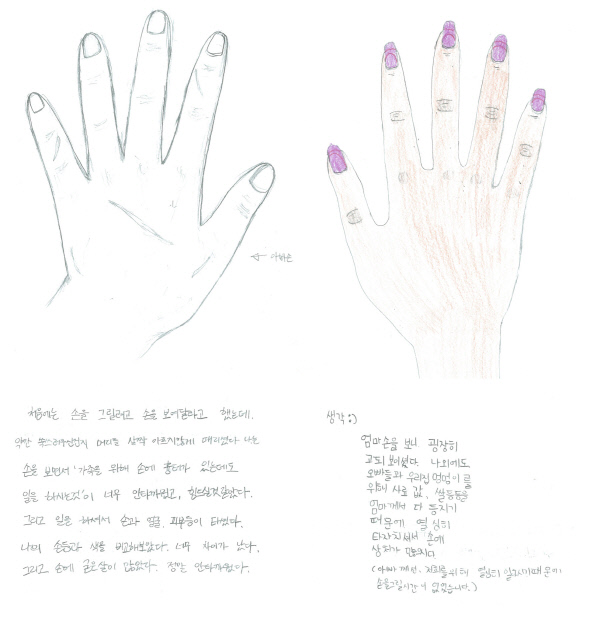 ← 아빠손
처음에는 손을 그릴려고 손을 보여달라고 했는데.
약간 쑥스러우신지 머리를 살짝 아프지않게 때리셨다 나는
손을 보면서 '가족을 위해 손에 흉터가 있는데도
일을 하시는것'이 너무 안타까웠고, 힘드실것같았다.
그리고 일은 하셔서 손과 얼굴, 피부들이 타셨다.
나의 손등과 색을 비교해보았다. 너무 차이가 났다.
그리고 손에 굳은살이 많았다. 정말 안타까웠다.
생각 :)
엄마손을 보니 굉장히
고되 보이셨다. 나외에도
오빠들과 우리집 멍멍이를
위해 사료 값, 쌀 등등을
엄마께서 다 등지기
때문에 열심히
타자치셔서 손에
상처가
(아빠 께선, 저희를위해 열심히 일하시기때문에
손을그릴시간이 없었습니다.)